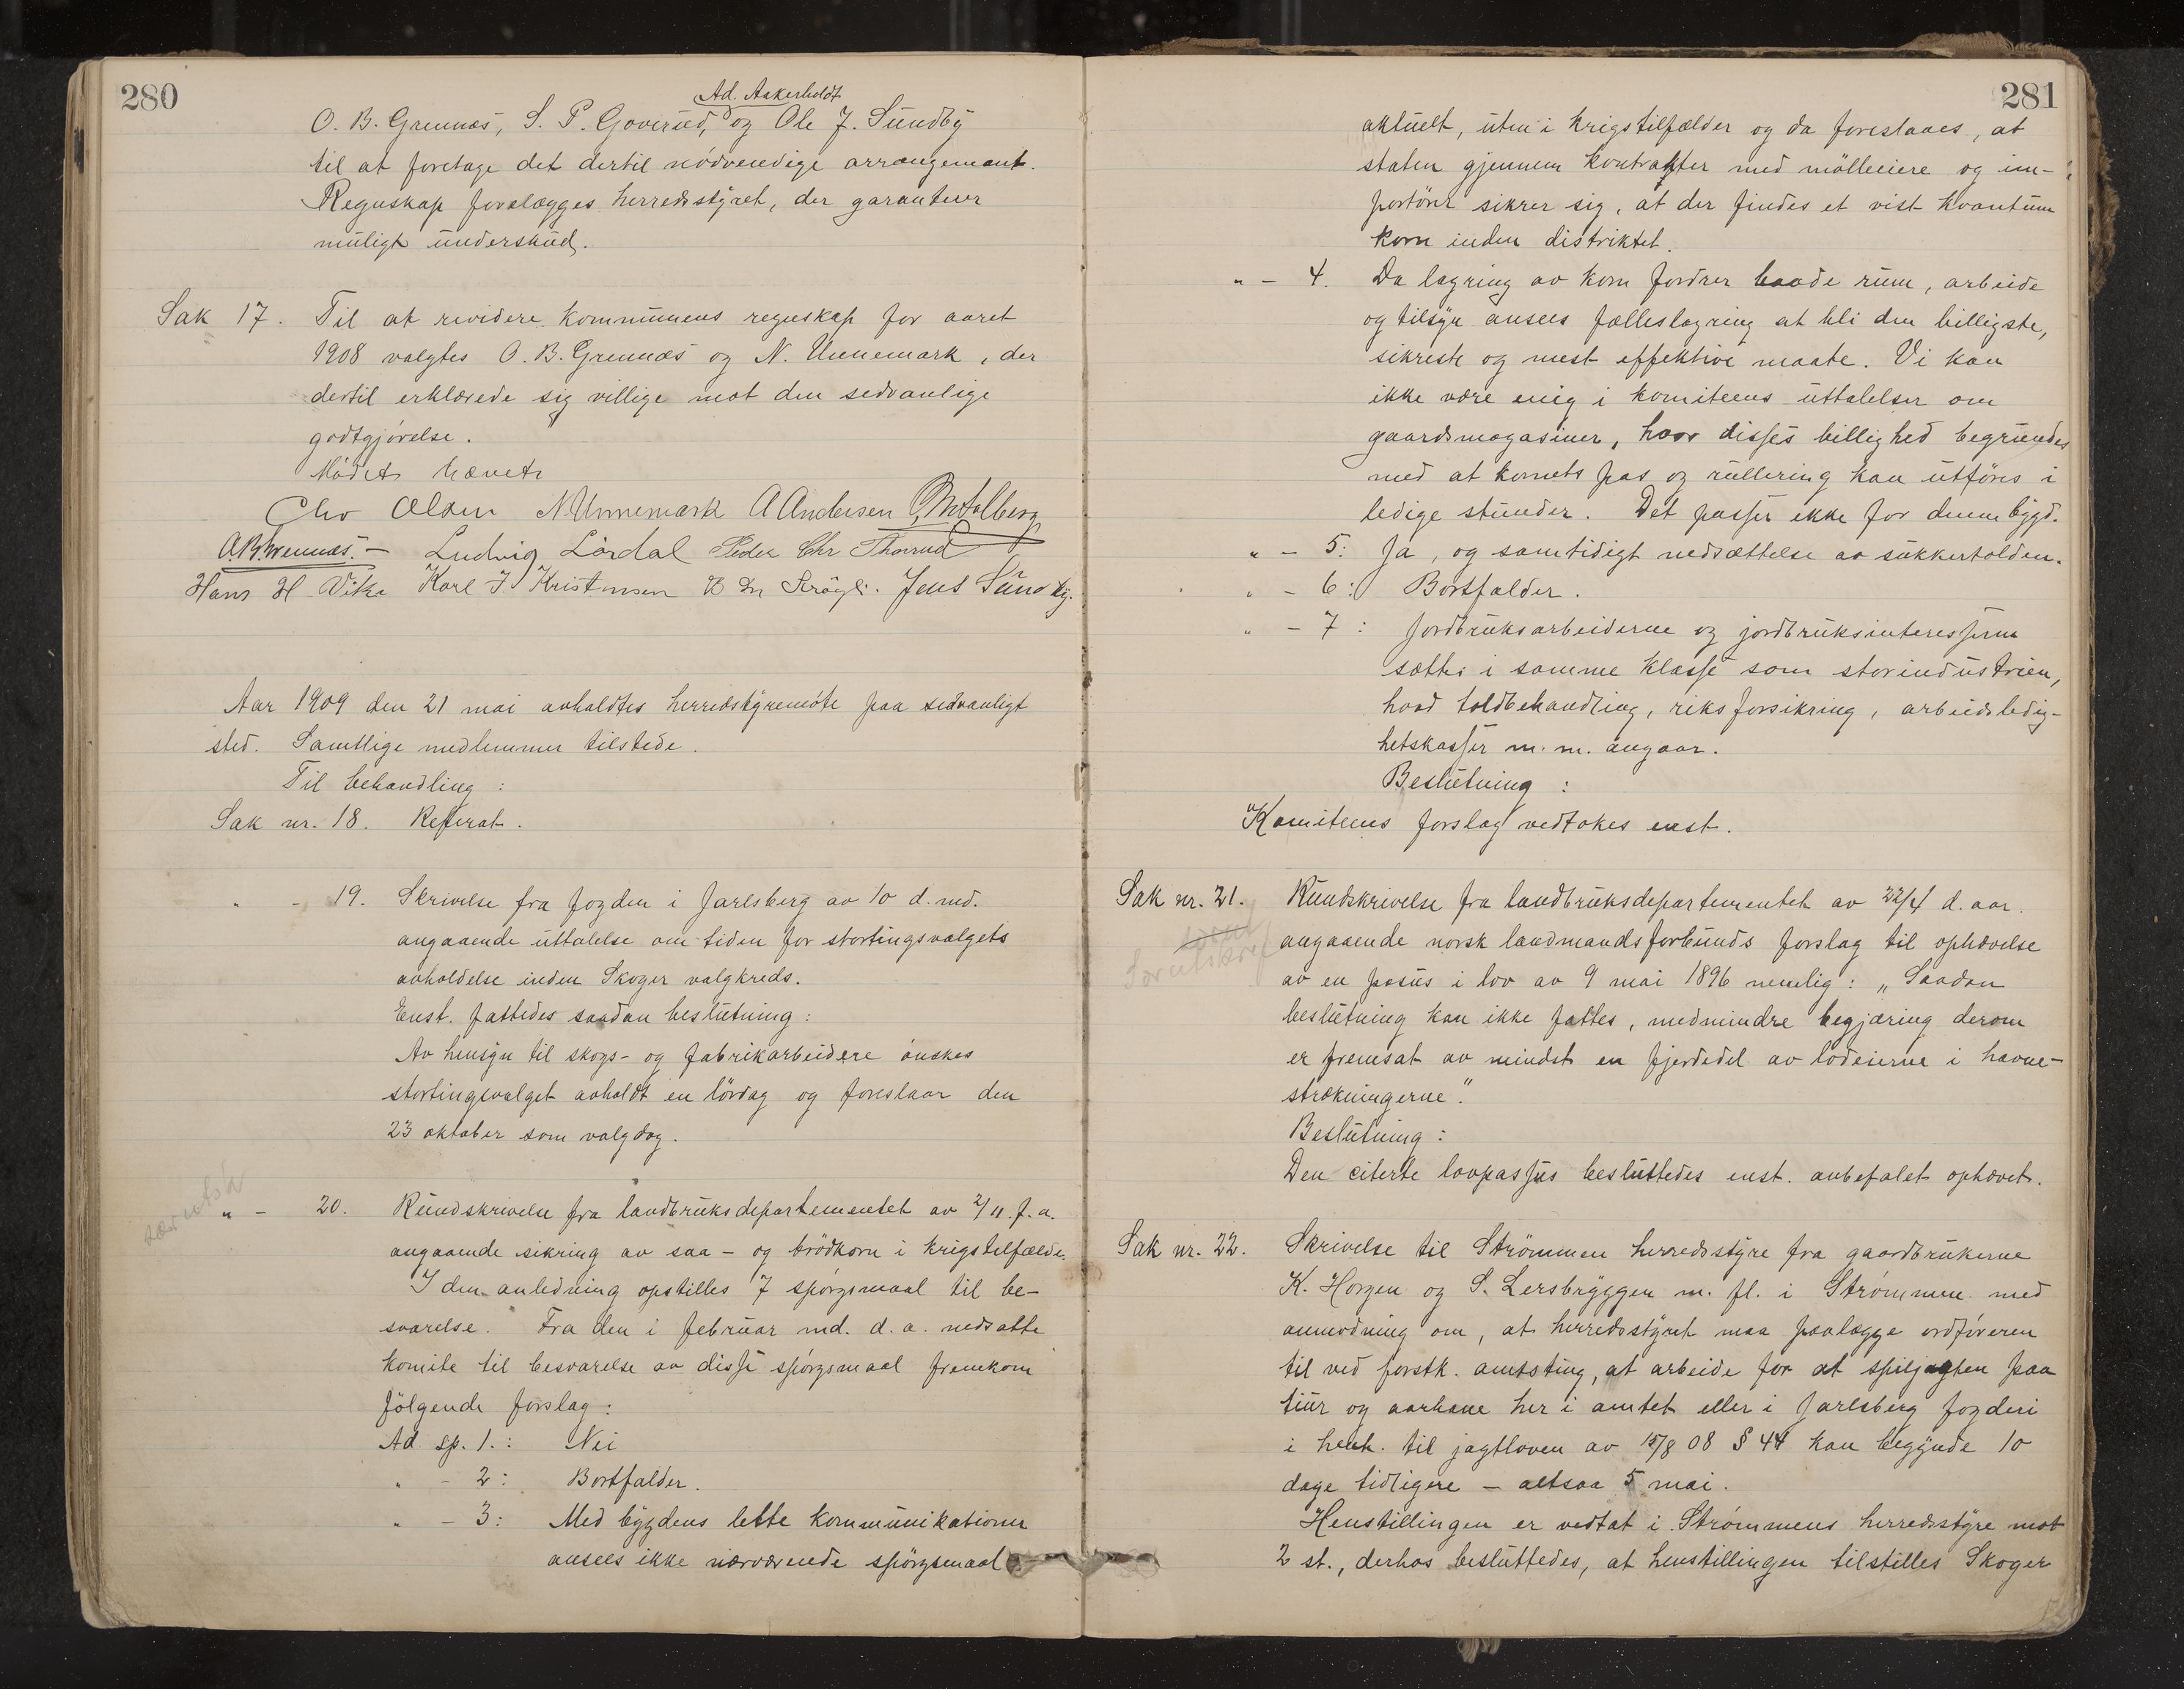 280
Ad. Aakerholdt
O. B. Grennæs, S. P. Goverud, og Ole J. Sundby
til at foretage det dertil nödvendige arrangement.
Regnskap forelægges herredsstyret, der garanterer
muligt underskud.
Sak 17. Til at revidere kommunens regnskap for aaret
1908 valgtes O. B. Grennæs og N. Unnemark, der
dertil erklærede sig villige mot den sedvanlige
godtgjörelse.
Mödet hævet
Chr Olsen N. Unnemark A Andersen
O. B. Grennæs. – Ludvig Lördal Peder Chr Thorrud
Hans H Vike Karl J. Kristensen Jens Sundby.
Aar 1909 den 21 mai avholdtes herredsstyremöte paa sedvanligt
sted. Samtlige medlemmer tilstede.
Til behandling :
Sak nr. 18. Referat.
" - 19. Skrivelse fra fogden i Jarlsberg av 10 d. md.
angaaende uttalelse om tiden for stortingsvalgets
avholdelse inden Skoger valgkreds.
Enst. fattedes saadan beslutning :
Av hensyn til skogs- og fabrikarbeidere önskes
stortingsvalget avholdt en lördag og foreslaar den
23 oktober som valgdag.
særutskr
" - 20. Rundskrivelse fra landbruksdepartementet av 2/11. f. a.
angaaende sikring av saa- og brödkorn i krigstilfælde.
I den anledning opstilles 7 spörgsmaal til be-
svarelse. Fra den i februar md. d. a. nedsatte
komite til besvarelse av disse spörgsmaal fremkom
fölgende forslag :
Ad sp. 1. : Nei
" - 2 : Bortfalder.
" - 3 : Med bygdens lette kommunikationer
ansees ikke nærværende spörgsmaal
281
aktuelt, uten i krigstilfælder og da foreslaaes, at
staten gjennem kontrakter med mölleeiere og im-
portörer sikrer sig, at der findes et vist kvantum
korn inden distriktet.
" - 4. Da lagring av korn fordrer baade rum, arbeide
og tilsyn ansees fælleslagring at bli den billigste,
sikreste og mest effektive maate. Vi kan
ikke være enig i komiteens uttalelser om
gaardsmagasiner, hvor disses billighed begrundes
med at kornets pas og rullering kan utföres i
ledige stunder. Det passer ikke for denne bygd.
" - 5 : Ja, og samtidigt nedsættelse av sukkertolden.
" - 6 : Bortfalder.
" - 7 : Jordbruksarbeiderne og jordbruksinteresserne
sættes i samme klasse som storindustrien,
hvad toldbehandling, riksforsikring, arbeidsledig-
hetskasser m. m. angaar.
Beslutning :
Komiteens forslag vedtokes enst.
Sak nr. 21. Rundskrivelse fra landbruksdepartementet av 22/4 d. aar.
Særutskrift
angaaende norsk landmandsforbunds forslag til ophævelse
av en pasus i lov av 9 mai 1896 nemlig : „Saadan
beslutning kan ikke fattes, medmindre begjæring derom
er fremsat av mindst en fjerdedel av lodeierne i havne-
strækningerne".
Beslutning :
Den citerte lovpassus besluttedes enst. anbefalet ophævet.
Sak nr. 22. Skrivelse til Strömmen herredsstyre fra gaardbrukerne
K. Horgen og S. Lersbryggen m. fl. i Strömmen med
anmodning om, at herredsstyret maa paalægge ordföreren
til ved forstk. amtsting, at arbeide for at spiljagten paa
tiur og aarhane her i amtet eller i Jarlsberg fogderi
i henh. til jagtloven av 15/8 08 § 44 kan begynde 10
dage tidligere – altsaa 5 mai.
Henstillingen er vedtat i Strömmens herredsstyre mot
2 st., derhos besluttedes, at henstillingen tilstilles Skoger